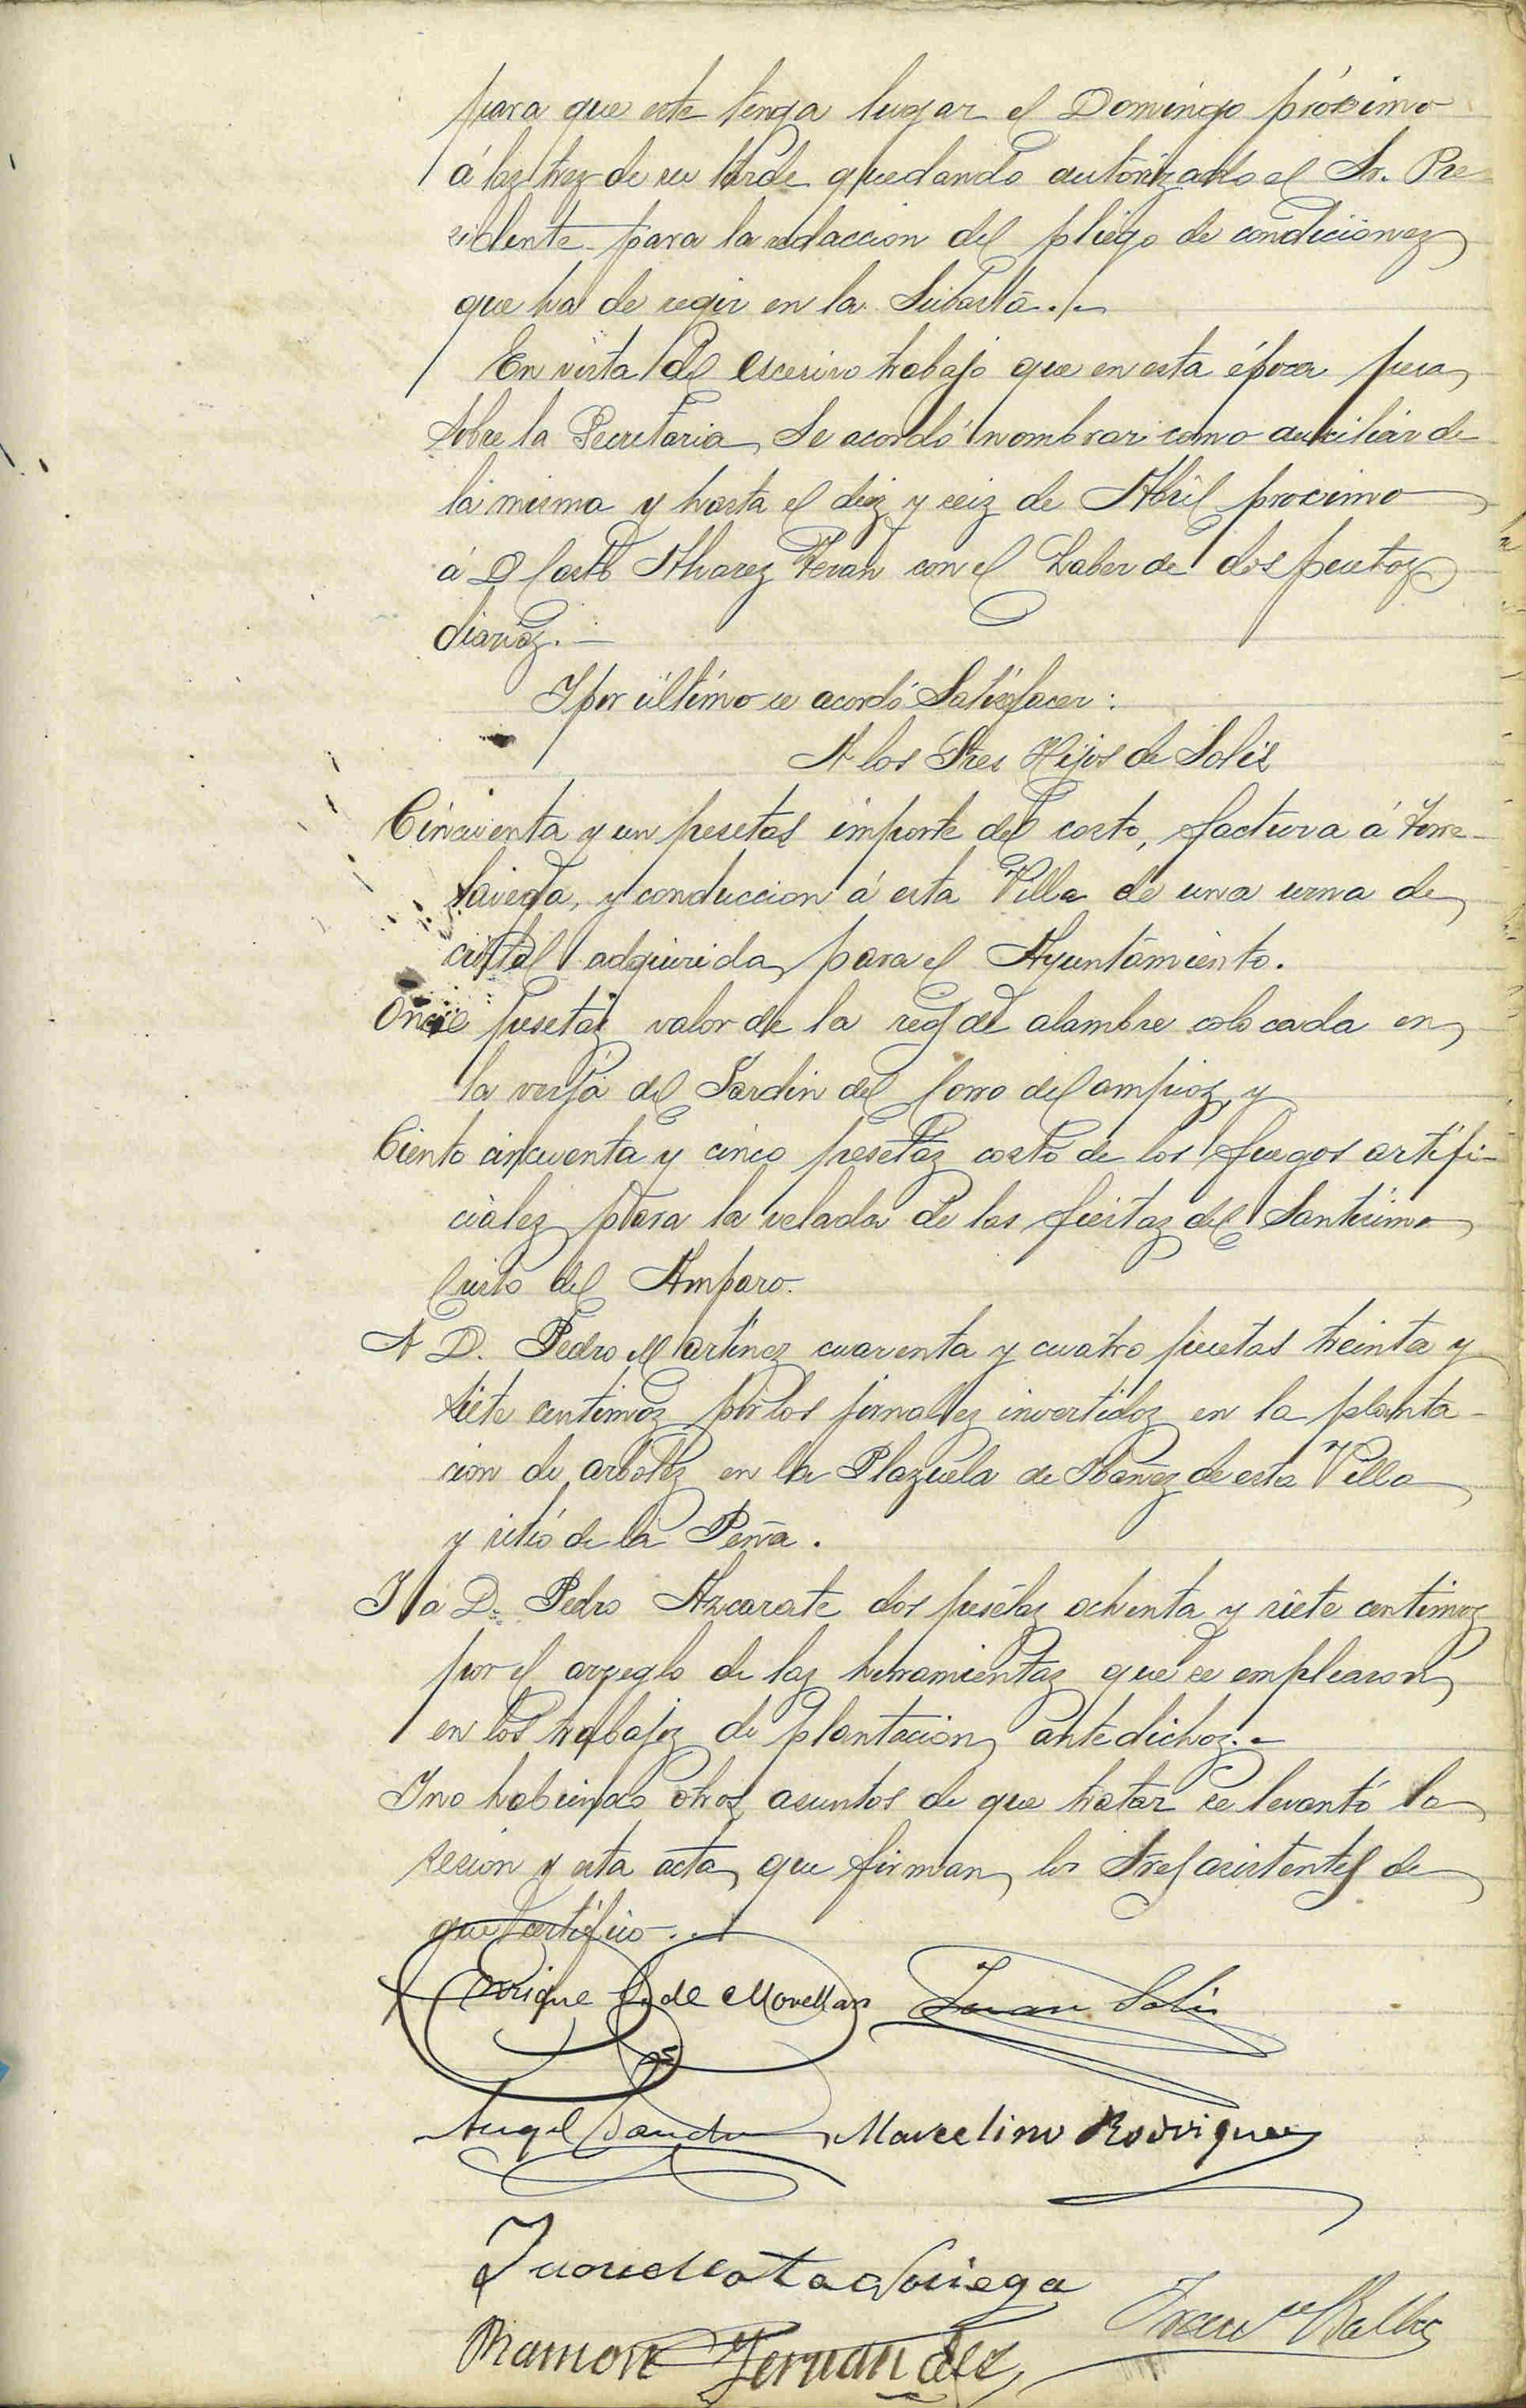 para que este tenga lugar el Domingo próximo
á las tres de su tarde quedando autorizado el Sr. Pre
sidente para la redaccion del pliego de condiciones
que ha de regir en la Subasta.
En vista del escesivo trabajo que en esta época pesa
sobre la Secretaria, se acordó nombrar como auxiliar de
la misma y hasta el diez y seis de Abril proximo
á D Casto Alvarez Teran con el haber de dos pesetas
diarias.
Y por último se acordó Satisfacer:
A los Sres Hijos de Solis
Cincuenta y un pesetas importe del costo, factura á Torre-
lavega, y conduccion á esta Villa de una urna de
cristal adquirida para el Ayuntamiento.
Once pesetas valor de la red de alambre colocada en
la verja del Jardin del Corro de Campios, y
Ciento cincuenta y cinco pesetas costo de los fuegos artifi-
ciales para la velada de las fiestas del Santisimo
Cristo del Amparo.
A D. Pedro Martinez cuarenta y cuatro pesetas treinta y
siete centimos por los jornales invertidos en la planta-
cion de arboles en la Plazuela de Ibañez de esta Villa
y sitio de la Peña.
Y a D. Pedro Azcarate dos pesetas ochenta y siete centimos
por el arreglo de las herramientas que se emplearon
en los trabajos de plantacion antedichos.
Y no habiendo otros asuntos de que tratar se levantó la
sesion y esta acta que firman los Sres asistentes de
que certifico.
Enrique G. de Movellan Juan Solis
Angel Sanchez Marcelino Rodriguez
Juan Mata Noriega
Ramon Fernandez Franco Balbas